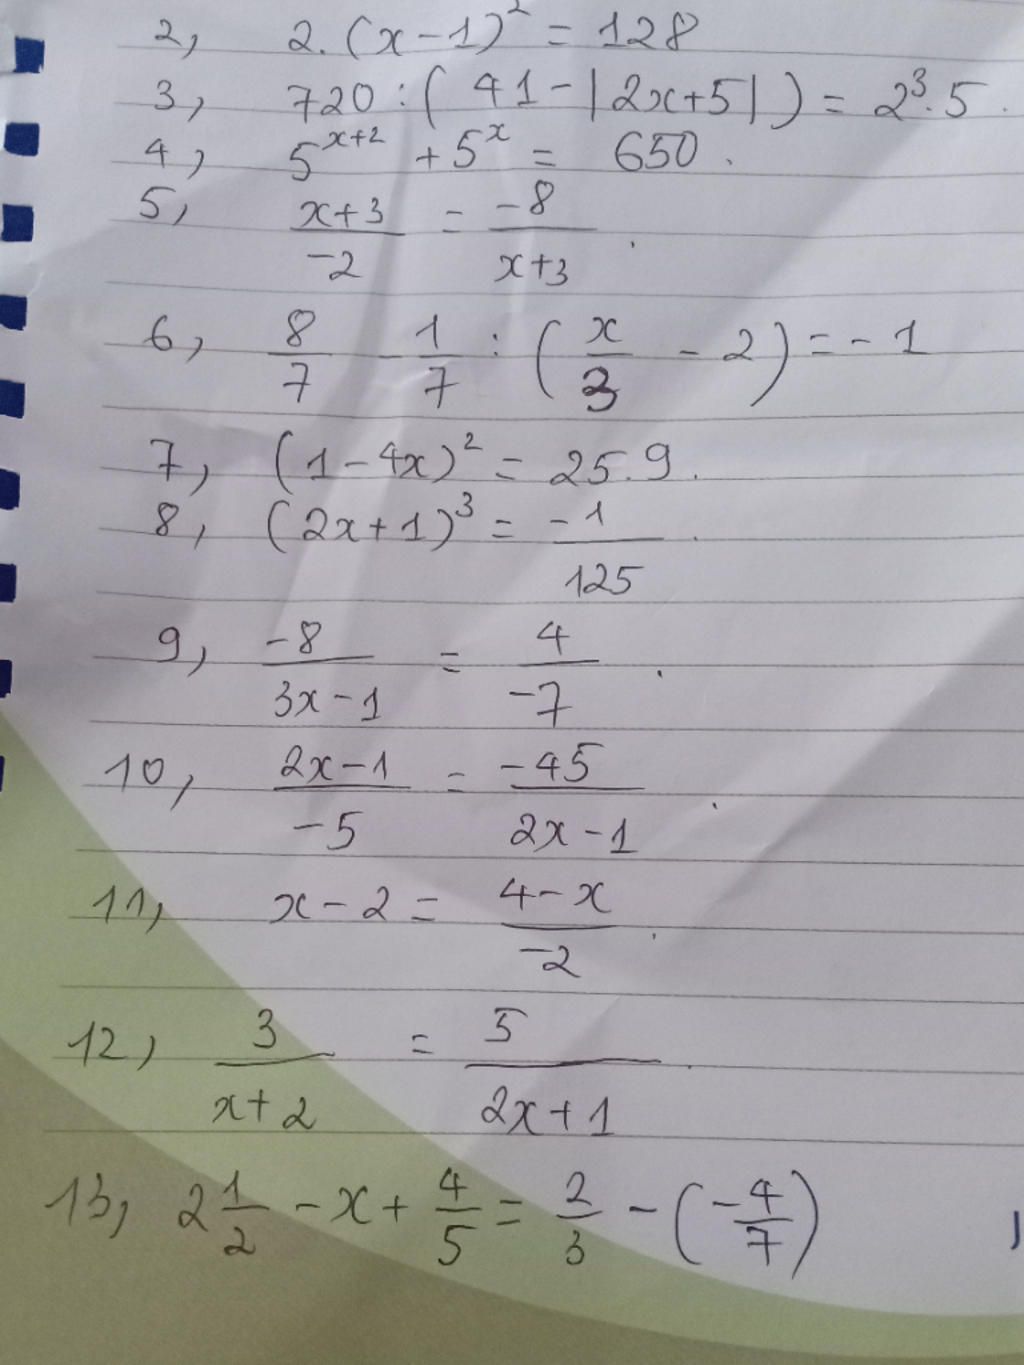 2, 2.(x-1)² = 128
3, 720:(41-|2x+5|) = 2³.5.
4, 5^{x+2} + 5^x = 650.
5, \frac{x+3}{-2} = \frac{-8}{x+3}.
6, \frac{8}{7} - \frac{1}{7} : (\frac{x}{3} - 2) = -1
7, (1-4x)² = 25.9.
8, (2x+1)³ = \frac{-1}{125}.
9, \frac{-8}{3x-1} = \frac{4}{-7}.
10, \frac{2x-1}{-5} = \frac{-45}{2x-1}.
11, x-2 = \frac{4-x}{-2}.
12, \frac{3}{x+2} = \frac{5}{2x+1}.
13, 2\frac{1}{2} - x + \frac{4}{5} = \frac{2}{3} - (-\frac{4}{7})